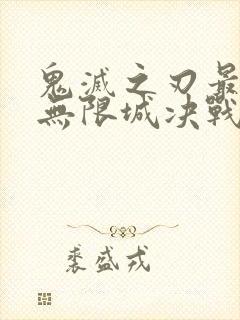 鬼滅之刃最
無限城決戰
裘盛戎